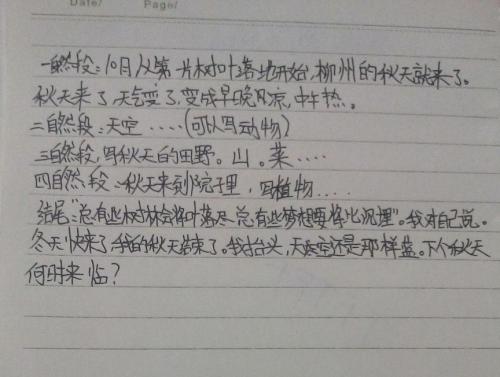 Date/ Page/
一自然段：10月从第一片树叶落地开始，柳州的秋天就来了。
秋天来了，天气变了，变成早晚风凉，中午热。
二自然段：天空……(可以写动物)
三自然段，写秋天的田野。山。菜……
四自然段：秋天来到院子里，写植物……
结尾"总有些树林会将叶落尽，总有些梦想要将化沉埋"。我对自己说。
冬天快来了，我的秋天结束了。我抬头，天空还是那样蓝。下个秋天
何时来临？